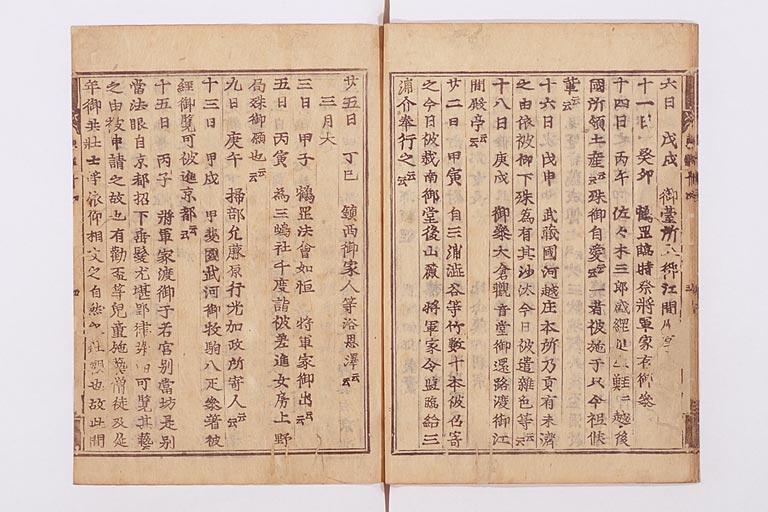 六日　戊戌　御臺所
十一日　癸卯　鶴罡臨時祭將軍家有御參
十四日　丙午　佐々木三郎盛綱 二　越後
國所領土産云云殊御自愛云云一者被施于 今祖候
輩云云
十六日　戊申　武藏國河越庄本所乃貢有未濟
之由依被仰下殊為有其沙汰今日被遣雜色等云云
十八日　庚戌　御參大倉觀音堂御還路渡御江
間殿亭云云
廿二日　甲寅　自三浦澁谷等竹數十本被召寄
之今日被栽南御堂後山麓　將軍家令監臨給三
浦介奉行之云云
廿五日　丁巳　鎮西御家人等浴恩澤云云
三月大
三日　甲子　鶴罡法會如恒　將軍家御出云云
五日　丙寅　為三嶋社千度詣被差進女房上野
局殊御願也云云
九日　庚午　掃部允藤原行光加政所寄人云云
十三日　甲戌　甲斐國武河御牧駒八疋參著被
經御覽可被進京都云云
十五日　丙子　將軍家渡御于若宮別當坊是別
當法眼自京都招下垂髮尤堪郢律 可覽其藝
之由被申請之故也有勸盃等兒童施藝僧徒及是
年御共壯士等依仰相交之自然 也故此間